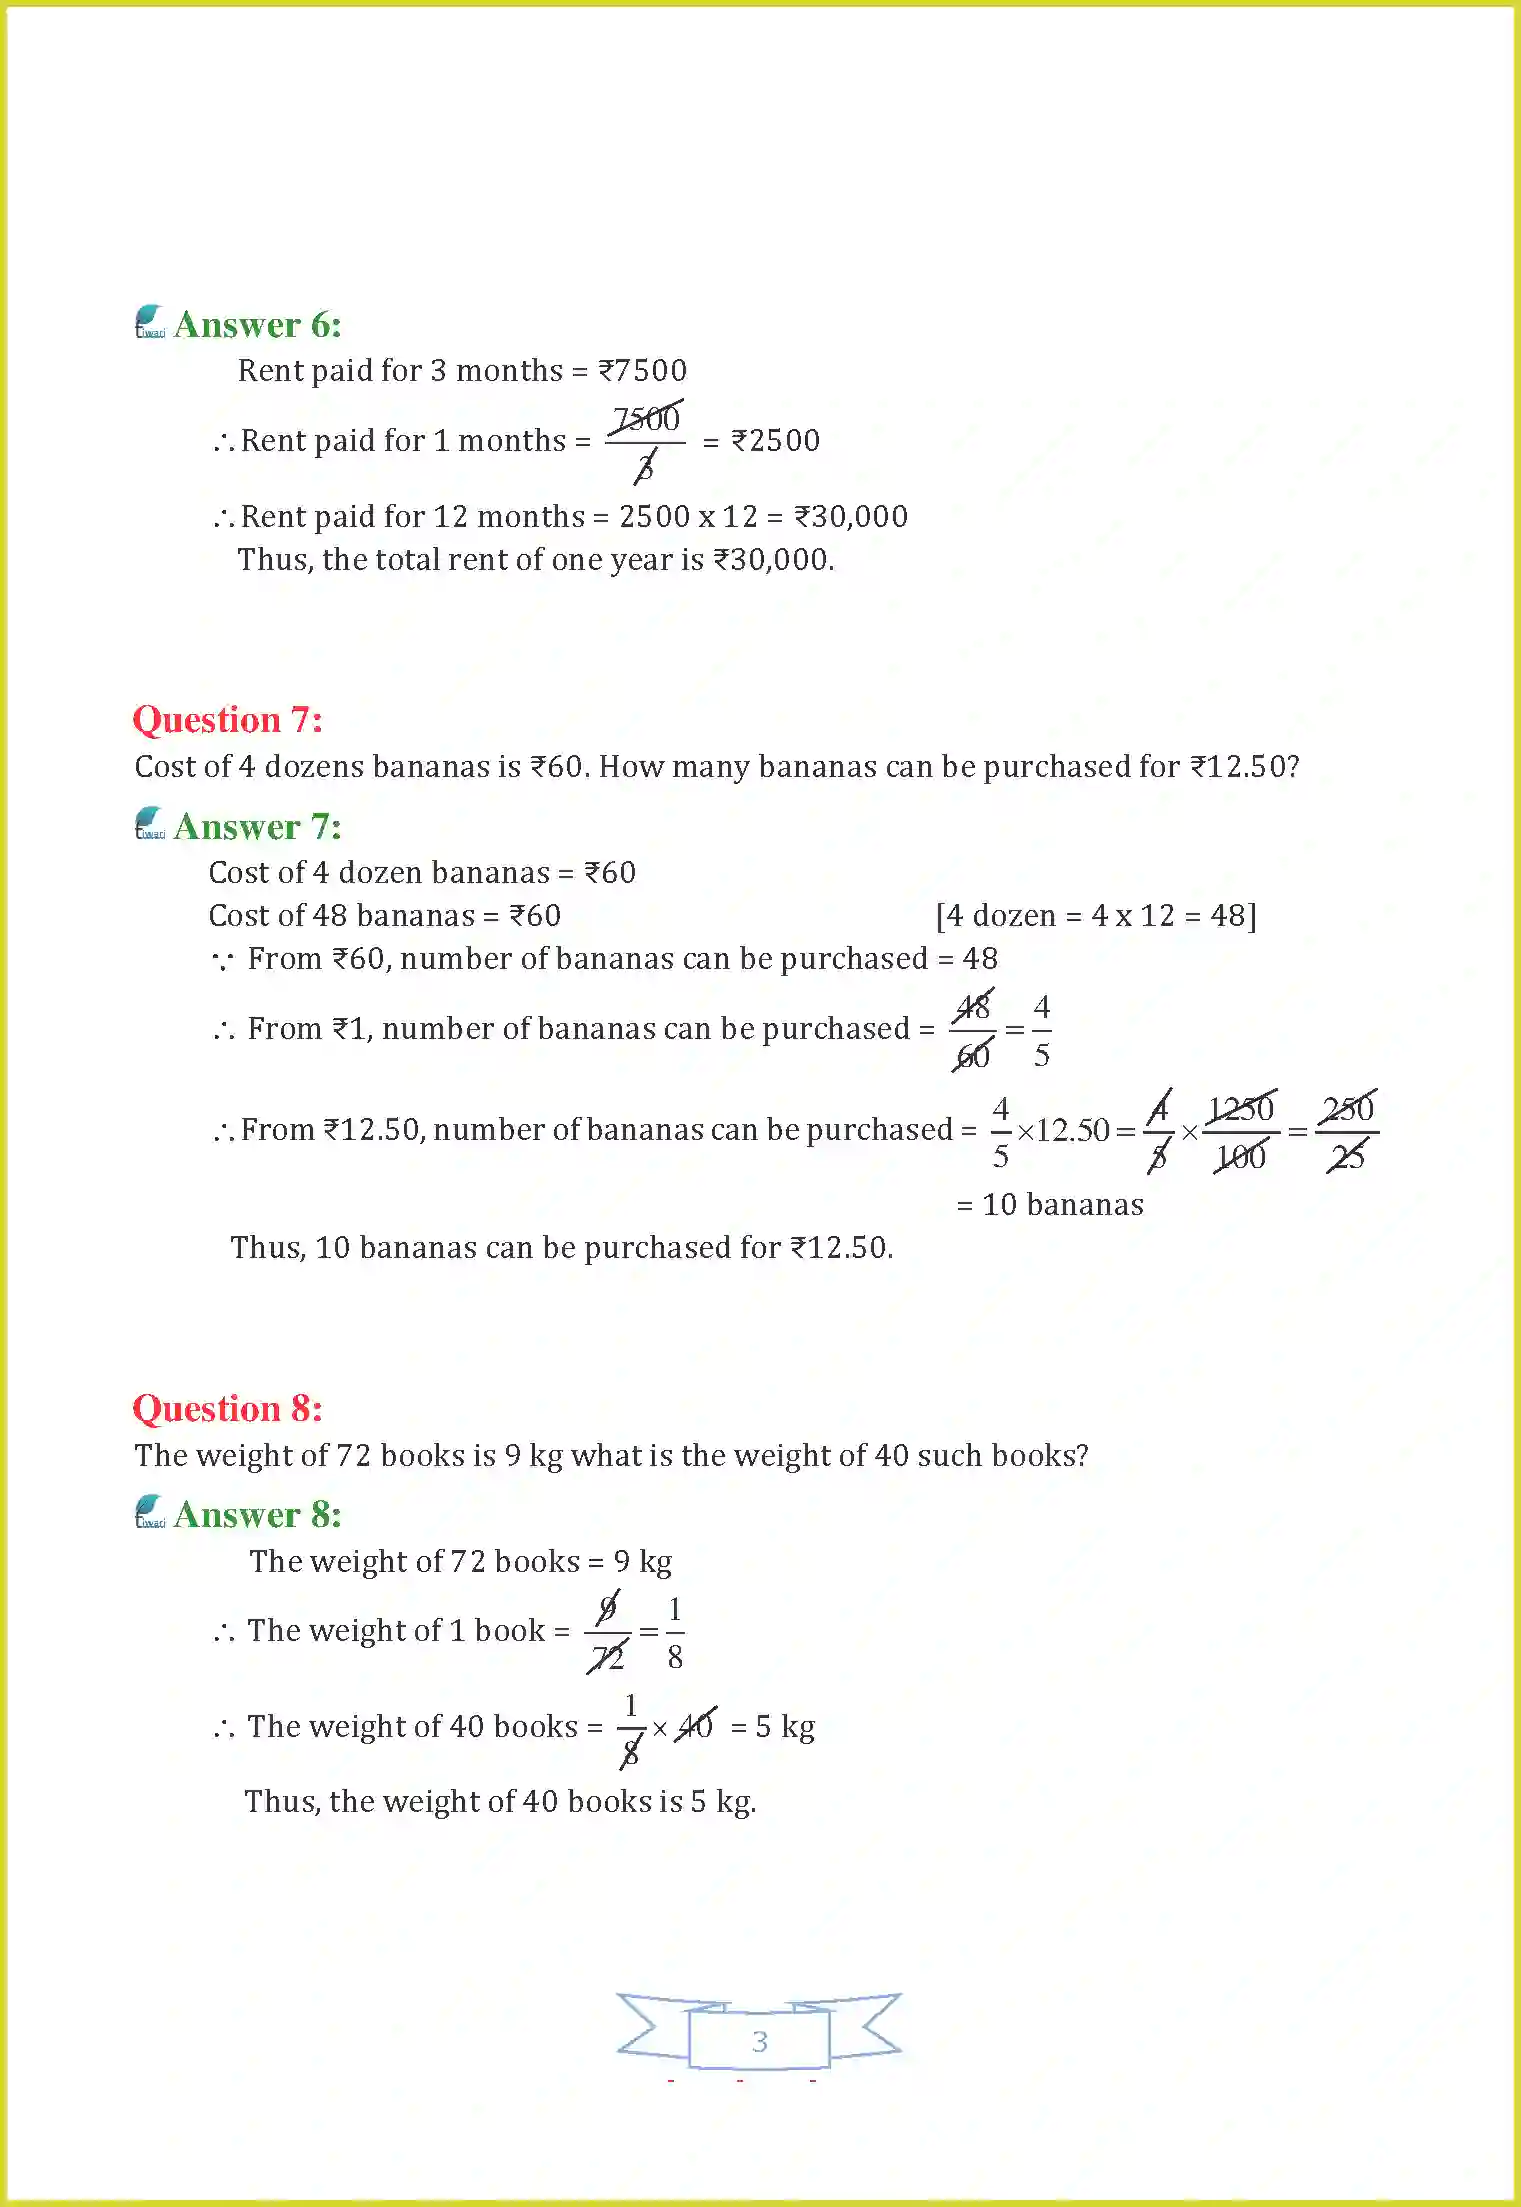 Answer 6:
Rent paid for 3 months = ₹7500
∴ Rent paid for 1 months = 7500/3 = ₹2500
∴ Rent paid for 12 months = 2500 x 12 = ₹30,000
Thus, the total rent of one year is ₹30,000.
Question 7:
Cost of 4 dozens bananas is ₹60. How many bananas can be purchased for ₹12.50?
Answer 7:
Cost of 4 dozen bananas = ₹60
Cost of 48 bananas = ₹60 [4 dozen = 4 x 12 = 48]
∵ From ₹60, number of bananas can be purchased = 48
∴ From ₹1, number of bananas can be purchased = 48/60 = 4/5
∴ From ₹12.50, number of bananas can be purchased = 4/5 ×12.50 = 4/5 × 1250/100 = 250/25
= 10 bananas
Thus, 10 bananas can be purchased for ₹12.50.
Question 8:
The weight of 72 books is 9 kg what is the weight of 40 such books?
Answer 8:
The weight of 72 books = 9 kg
∴ The weight of 1 book = 9/72 = 1/8
∴ The weight of 40 books = 1/8 × 40 = 5 kg
Thus, the weight of 40 books is 5 kg.
3